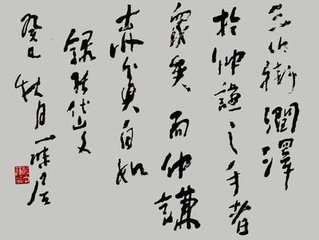 街潤澤
於仲謙之手者
而仲謙
赤貧自如
錄張岱文
癸巳秋月一味居